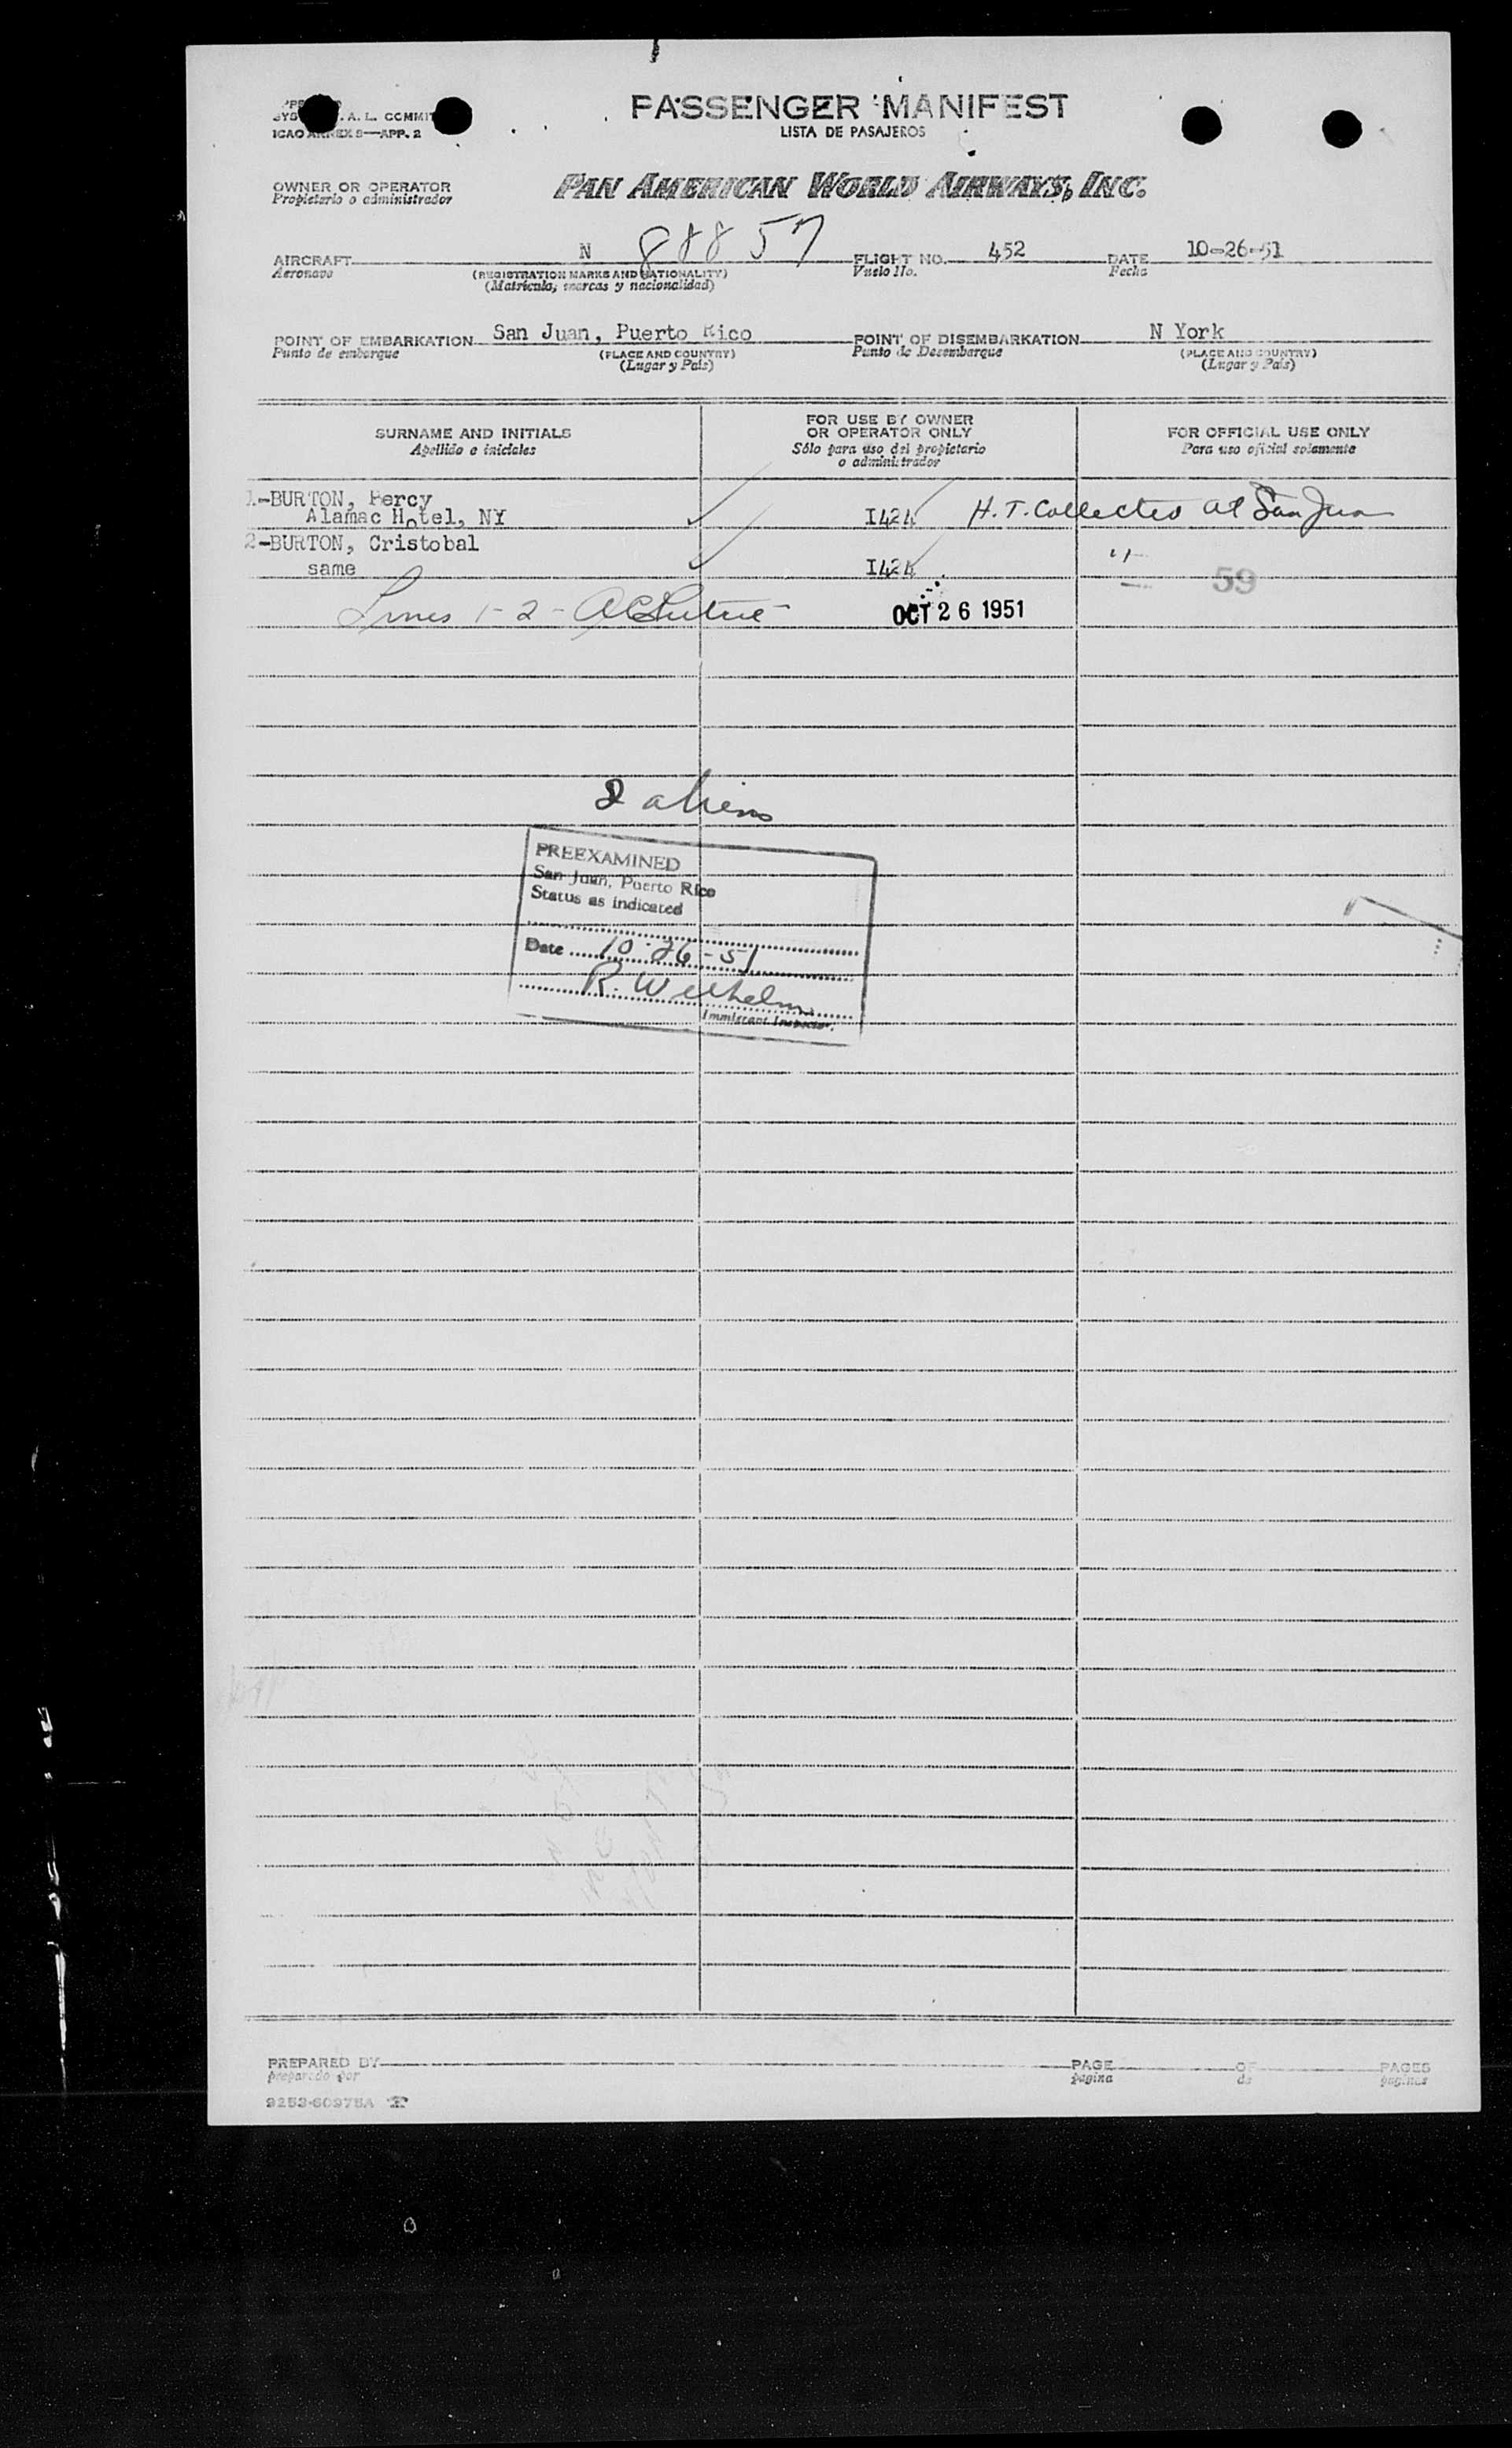 A. L. COMMIT
ICAO ANNEX 9—APP. 2
PASSENGER MANIFEST
LISTA DE PASAJEROS
OWNER OR OPERATOR
Propietario o administrador
PAN AMERICAN WORLD AIRWAYS, INC.
AIRCRAFT N 88857 FLIGHT NO. 452 DATE 10-26-51
Aeronave (REGISTRATION MARKS AND NATIONALITY) Vuelo No. Fecha
(Matrícula, marcas y nacionalidad)
POINT OF EMBARKATION San Juan, Puerto Rico POINT OF DISEMBARKATION N York
Punto de embarque (PLACE AND COUNTRY) Punto de Desembarque (PLACE AND COUNTRY)
(Lugar y País) (Lugar y País)
SURNAME AND INITIALS
Apellido e iniciales
FOR USE BY OWNER
OR OPERATOR ONLY
Sólo para uso del propietario
o administrador
FOR OFFICIAL USE ONLY
Para uso oficial solamente
1-BURTON, Percy
Alamac Hotel, NY I424 H.T. Collected at San Juan
2-BURTON, Cristobal
same I424 "
59
Lines 1-2-
OCT 26 1951
2 aliens
PREEXAMINED
San Juan, Puerto Rico
Status as indicated
Date 10-26-51
R. Wilhelm
Immigrant Inspector.
PREPARED BY PAGE OF PAGES
preparado por página de páginas
9253-60975A